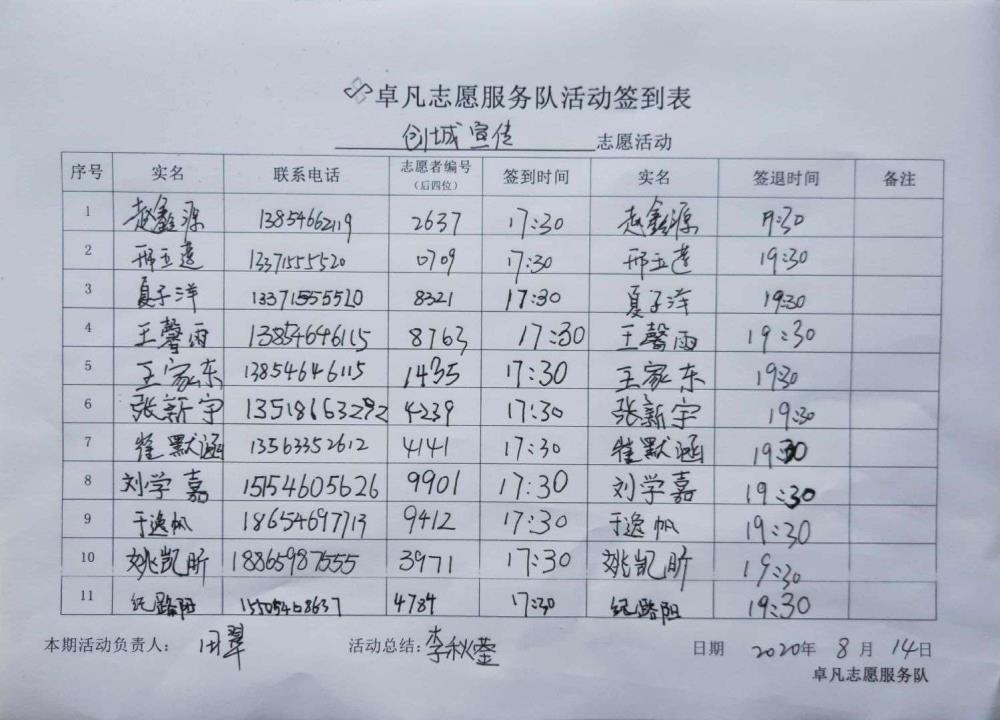 卓凡志愿服务队活动签到表
创城宣传 志愿活动
序号 实名 联系电话 志愿者编号（后四位） 签到时间 实名 签退时间 备注
1 赵鑫源 13854662119 2637 17:30 赵鑫源 :30
2 邢玉莲 13371555520 0709 17:30 邢玉莲 19:30
3 夏子洋 13371555510 8321 17:30 夏子洋 19:30
4 王馨雨 13854646115 8763 17:30 王馨雨 19:30
5 王家东 13854646115 1435 17:30 王家东 19:30
6 张新宇 13518663292 4239 17:30 张新宇 19:30
7 崔默涵 13563352612 4141 17:30 崔默涵 19:30
8 刘学嘉 15154605626 9901 17:30 刘学嘉 19:30
9 于逸帆 18654697713 9412 17:30 于逸帆 19:30
10 姚凯昕 18865987555 3971 17:30 姚凯昕 19:30
11 纪路阳 15505408637 4784 17:30 纪路阳 19:30
本期活动负责人： 田翠 活动总结: 李秋莹 日期 2020年 8月 14日
卓凡志愿服务队